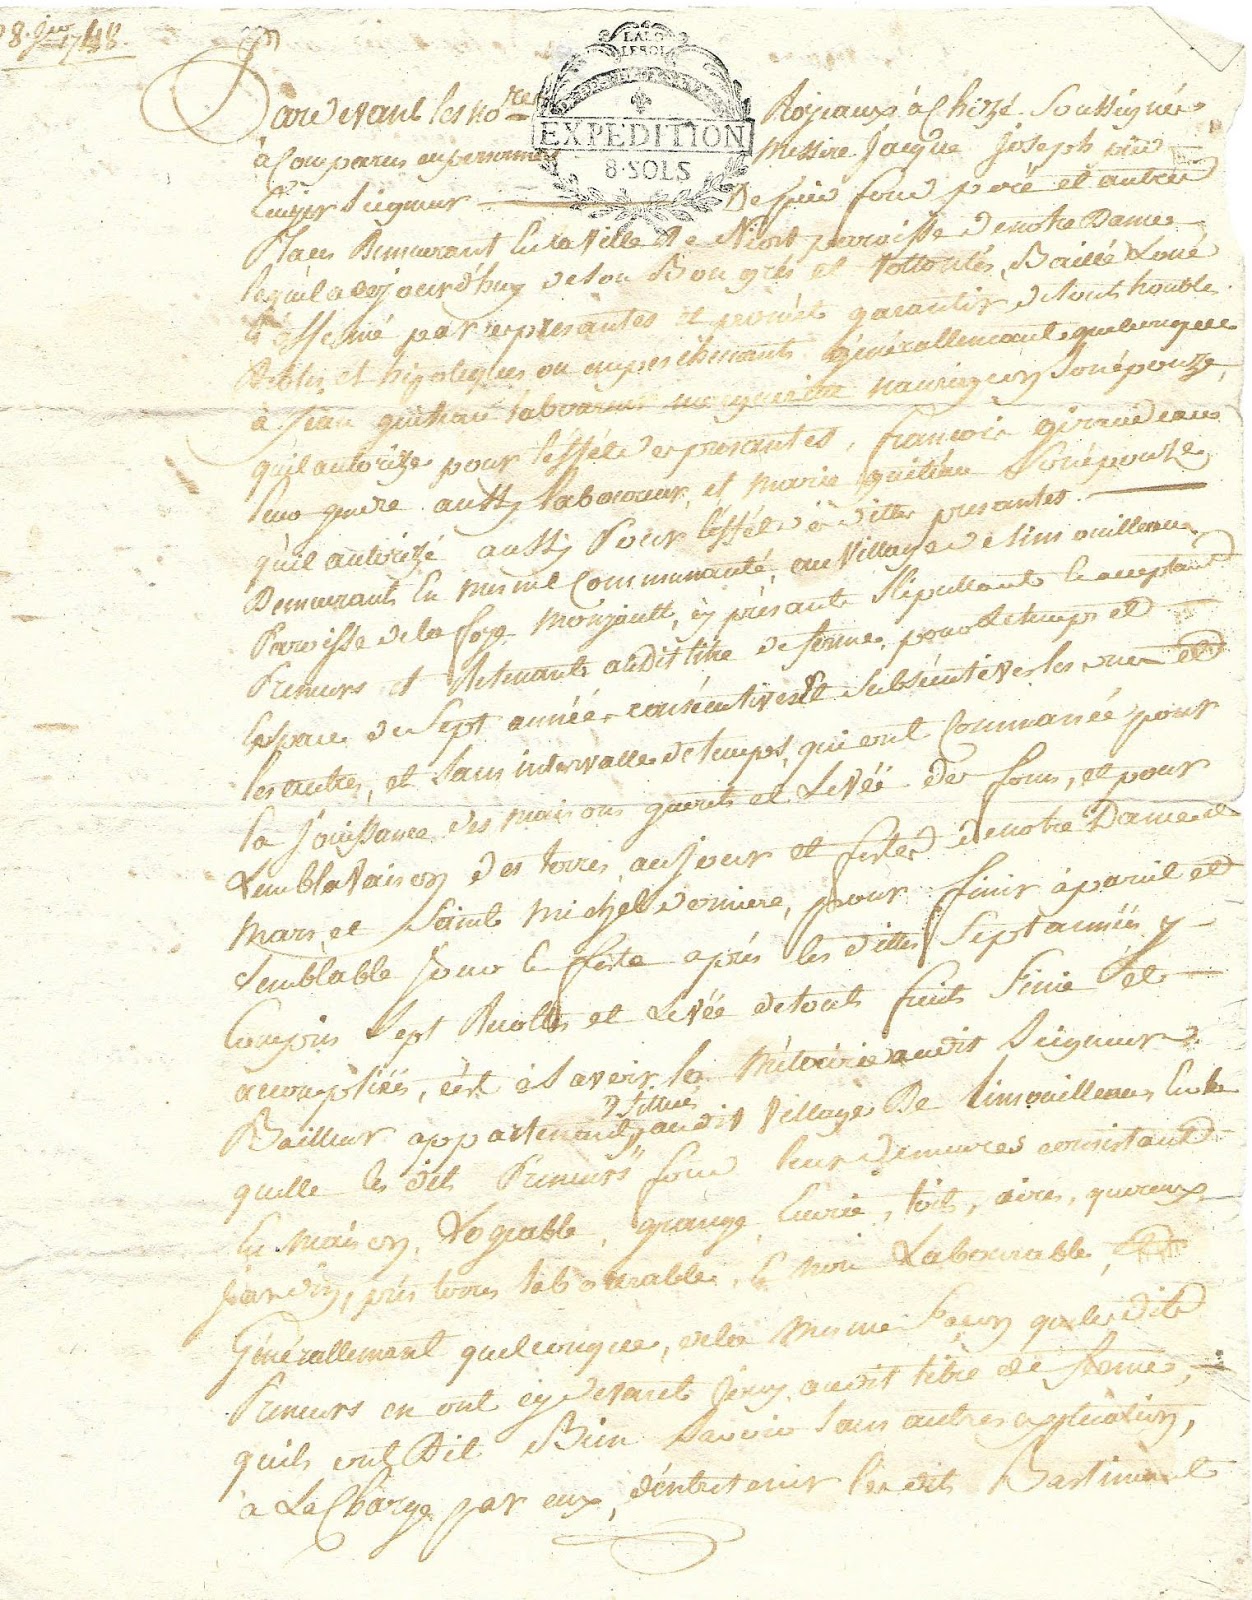 8. Jer 1748
LA LO
LE SOL
EXPEDITION
8·SOLS
Pardevant les nores Royaux à Chizé Soussignés
à Comparus en personnes Messire Jacque Joseph
Ecuyer Seigneur De puis fond poiré et autres
Places Demeurant En la Ville de Niort paroisse de notre Dame
lequel a aujourd'huy de son Bon gré et Vollonté, Baillé Loué
& affermé par ces presantes et promet garantir de tout trouble
debtes et hipoteques ou empeschemants généralleman quelconque
à Jean guitteau laboureur marguerite Son épouze,
qu'il autorize pour l'effet des presantes, francois giraudeau
leur gendre aussy laboureur, et marie guitteau Son épouze,
qu'il autorize aussy Pour l'effet des dittes presantes.
Demeurants En mesme Communauté, au Village de limouilleau
Paroisse de la foye Monjault, cy présants Stipullants & acceptant
Preneurs et Retenants audit titre de ferme, pour le temps et
Espace de Sept années consécutives et Subséentives les unes et
les autres, et Sans intervalle de temps, qui ont Commancé pour
la Jouissance des maisons guerets et Levée de foins, et pour
L'emblavaison des terres, au jour et feste de notre Dame de
Mars, et Saint Michel derniere, pour finir à pareil et
Semblable Jour & feste après les dittes Sept années y
Compris Sept Recoltes et Levée de touts fruits Finie et
acomplies, c'est à Savoir la Métairie audit Seigneur
Bailleur appartenante, scittuée audit Village De limouilleau En la
quelle les dits Preneurs font leur demeure consistant
En maison, Logeable, grange, Ecurie, toits, aires, quereux,
Jardin, prés terres labourable, & non Labourable, et
Générallement quelconque, de la mesme façon que les dits
Preneurs en ont cy devant Jouy audit titre de ferme,
qu'ils ont Dit Bien Savoir Sans autres explication,
à La Charge par eux, d'entretenir les dits Bastiments